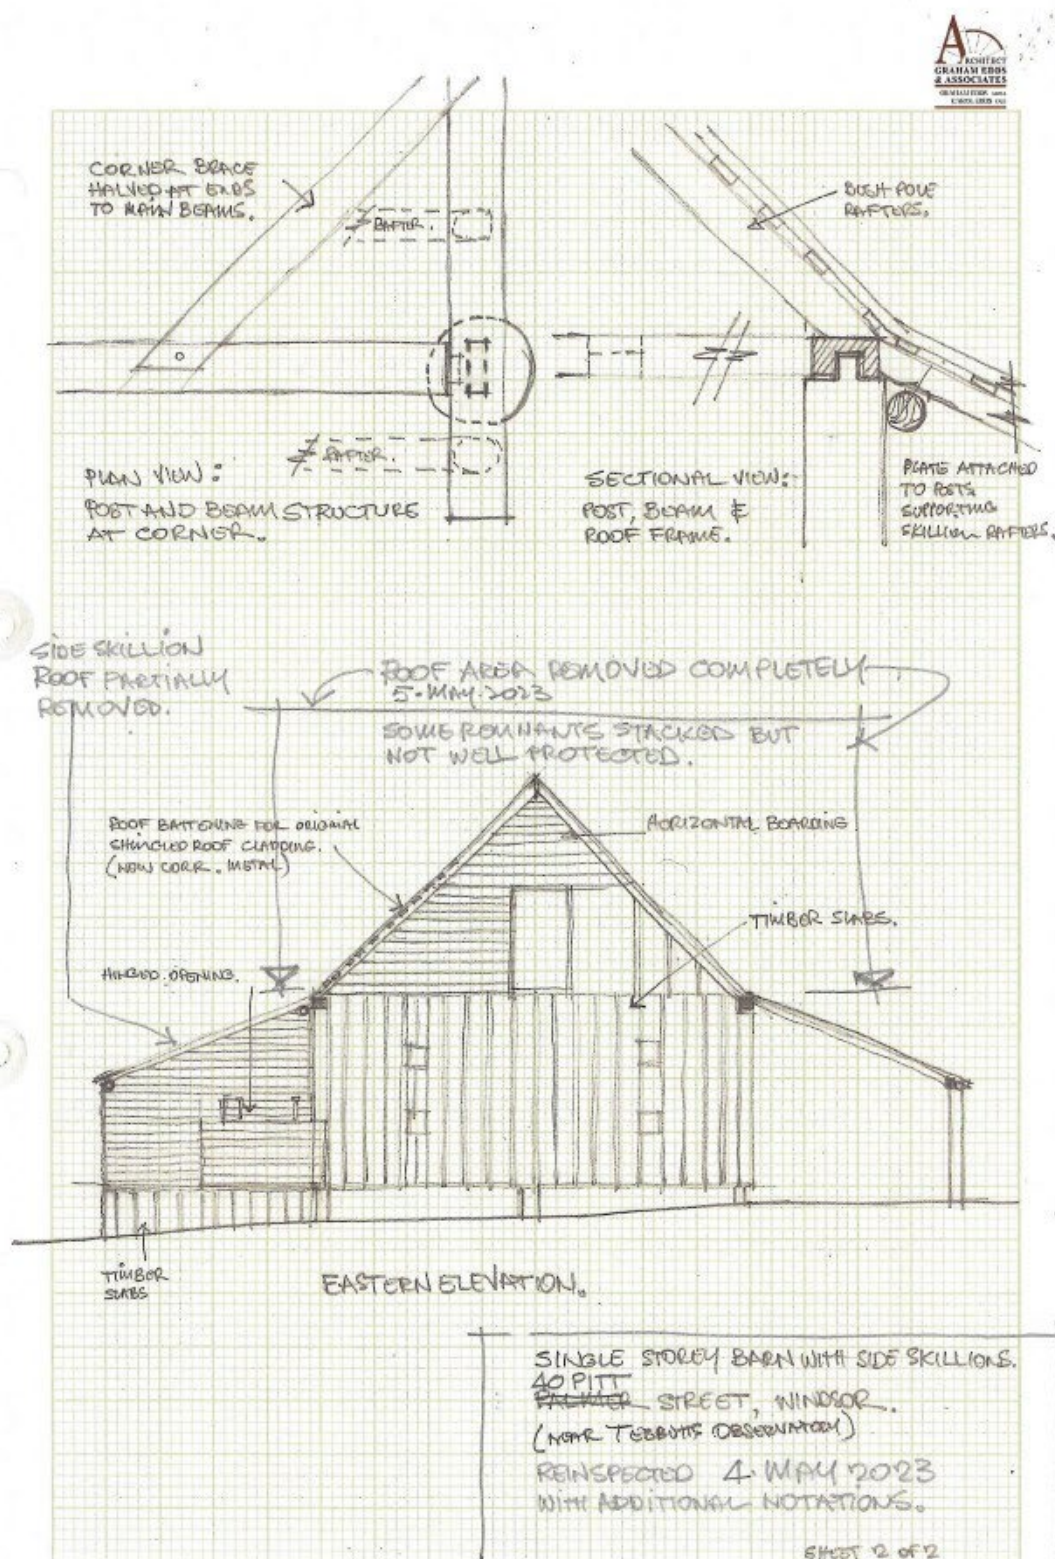 ARCHITECT
GRAHAM EDDS
& ASSOCIATES
CORNER BRACE
HALVED AT ENDS
TO MAIN BEAMS.
RAFTER.
BUSH POLE
RAFTERS.
RAFTER.
PLAN VIEW:
POST AND BEAM STRUCTURE
AT CORNER.
SECTIONAL VIEW:-
POST, BEAM &
ROOF FRAME.
PLATE ATTACHED
TO POSTS
SUPPORTING
SKILLION RAFTERS.
SIDE SKILLION
ROOF PARTIALLY
REMOVED.
ROOF AREA REMOVED COMPLETELY
5. MAY. 2023
SOME REMNANTS STACKED BUT
NOT WELL PROTECTED.
ROOF BATTENING FOR ORIGINAL
SHINGLED ROOF CLADDING.
(NOW CORR. METAL)
HORIZONTAL BOARDING
TIMBER SLABS.
HINGED OPENING.
TIMBER
SLABS
EASTERN ELEVATION.
SINGLE STOREY BARN WITH SIDE SKILLIONS.
40 PITT
PALMER STREET, WINDSOR.
(NEAR TEBBUTTS OBSERVATORY)
REINSPECTED 4. MAY 2023
WITH ADDITIONAL NOTATIONS.
SHEET 2 OF 2